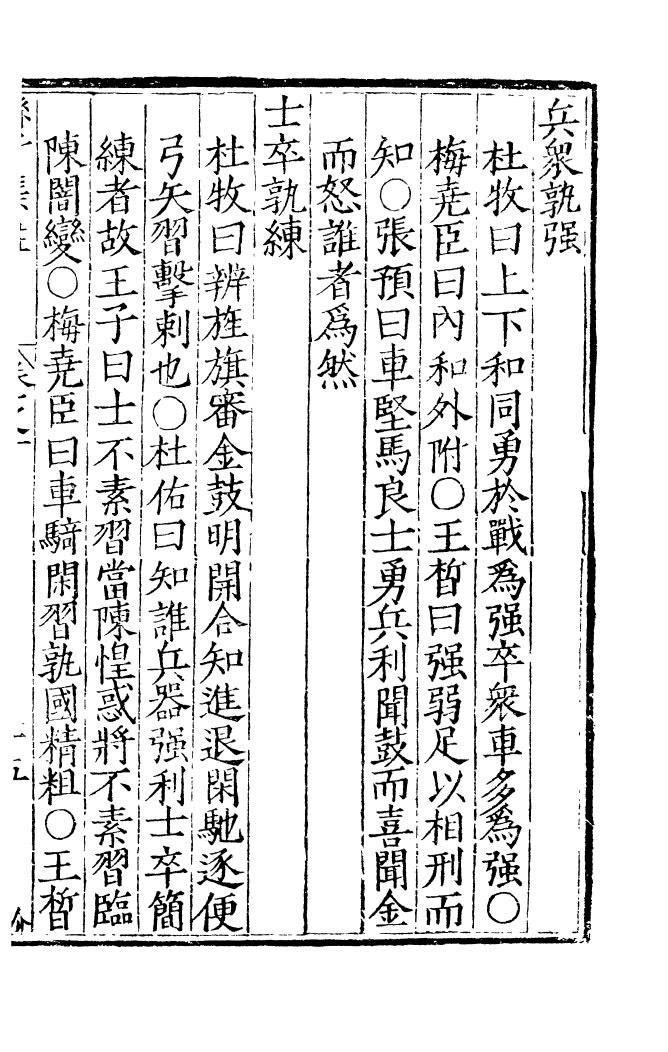 兵衆孰强
杜牧曰上下和同勇於戰爲强卒衆車多爲强○
梅堯臣曰內和外附○王晳曰强弱足以相刑而
知○張預曰車堅馬良士勇兵利聞鼓而喜聞金
而怒誰者爲然
士卒孰練
杜牧曰辨旌旗審金鼓明開合知進退閑馳逐便
弓矢習擊刺也○杜佑曰知誰兵器强利士卒簡
練者故王子曰士不素習當陳惶惑將不素習臨
陳闇變○梅堯臣曰車騎閑習孰國精粗○王晳